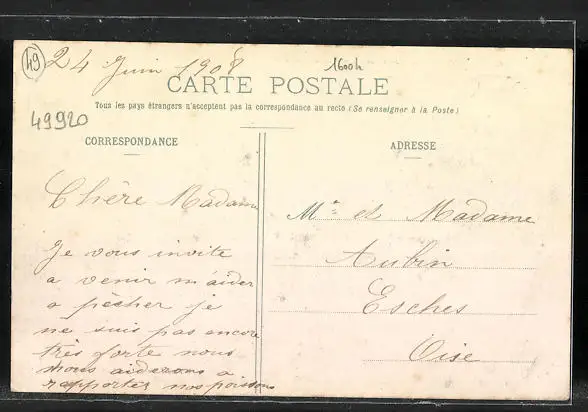 49
24 Juin 1908
1600h
CARTE POSTALE
Tous les pays étrangers n'acceptent pas la correspondance au recto (Se renseigner à la Poste)
49920
CORRESPONDANCE
ADRESSE
Chère Madame
Mr et Madame
Aubin
Esches
Oise
Je vous invite
a venir m'aider
a pêcher je
ne suis pas encore
très forte nous
nous aiderons a
rapporter nos poissons